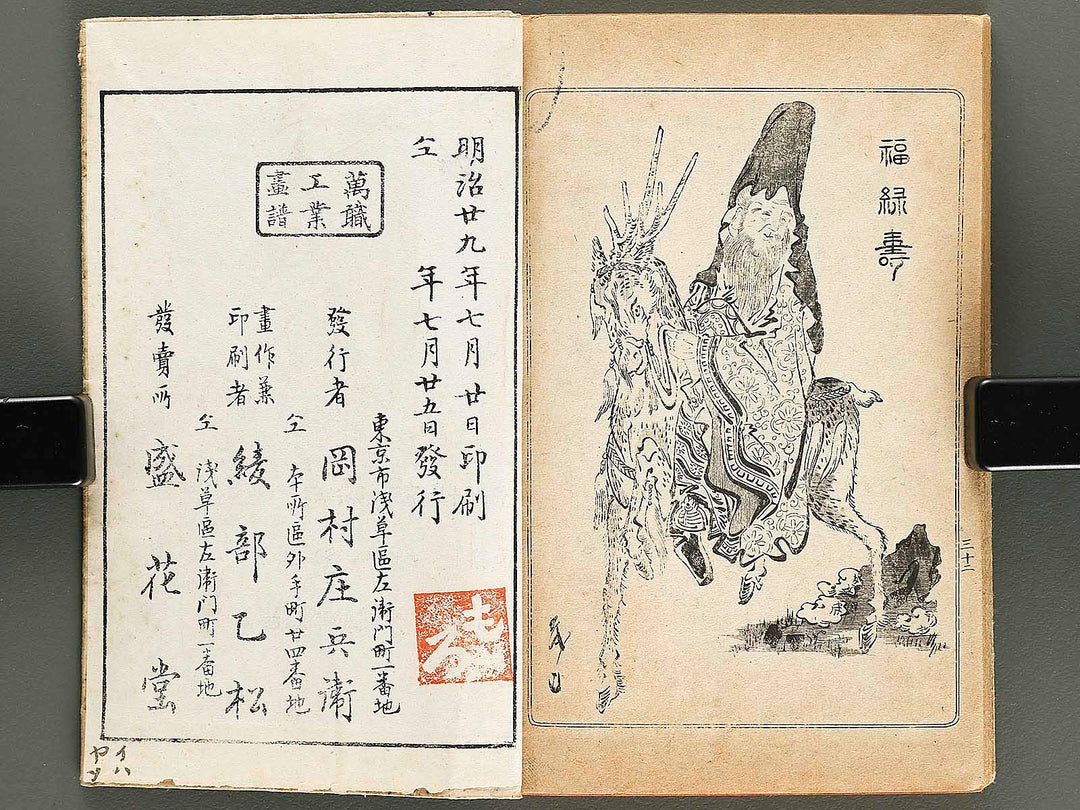 福緑壽
三十二
明治廿九年七月廿日印刷
仝年七月廿五日發行
萬職
工業
畫譜
東京市浅草區左衛門町一番地
發行者 岡村庄兵衛
仝本所區外手町廿四番地
畫作兼
印刷者 綾部乙松
仝浅草區左衛門町一番地
發賣所 盛花堂
イハ
ヤツ